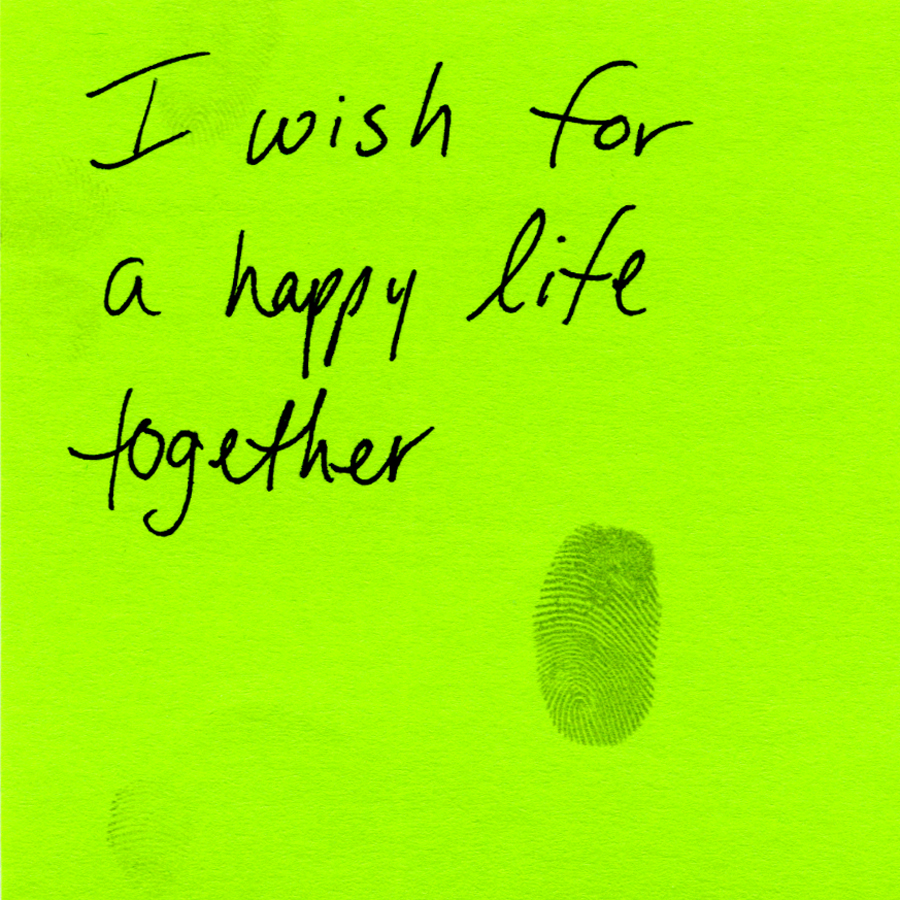 I wish for
a happy life
together